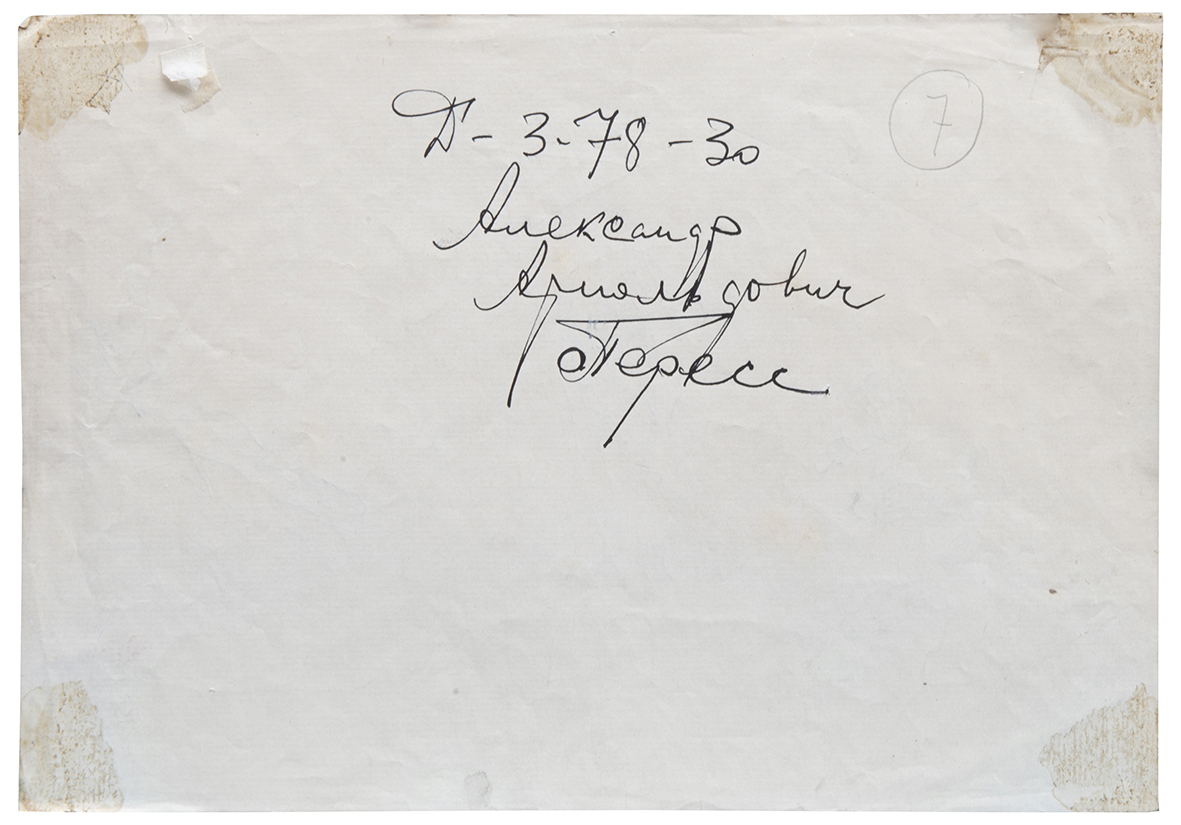 Д - 3-78-30
Александр
Арнольдович
Пересс
7